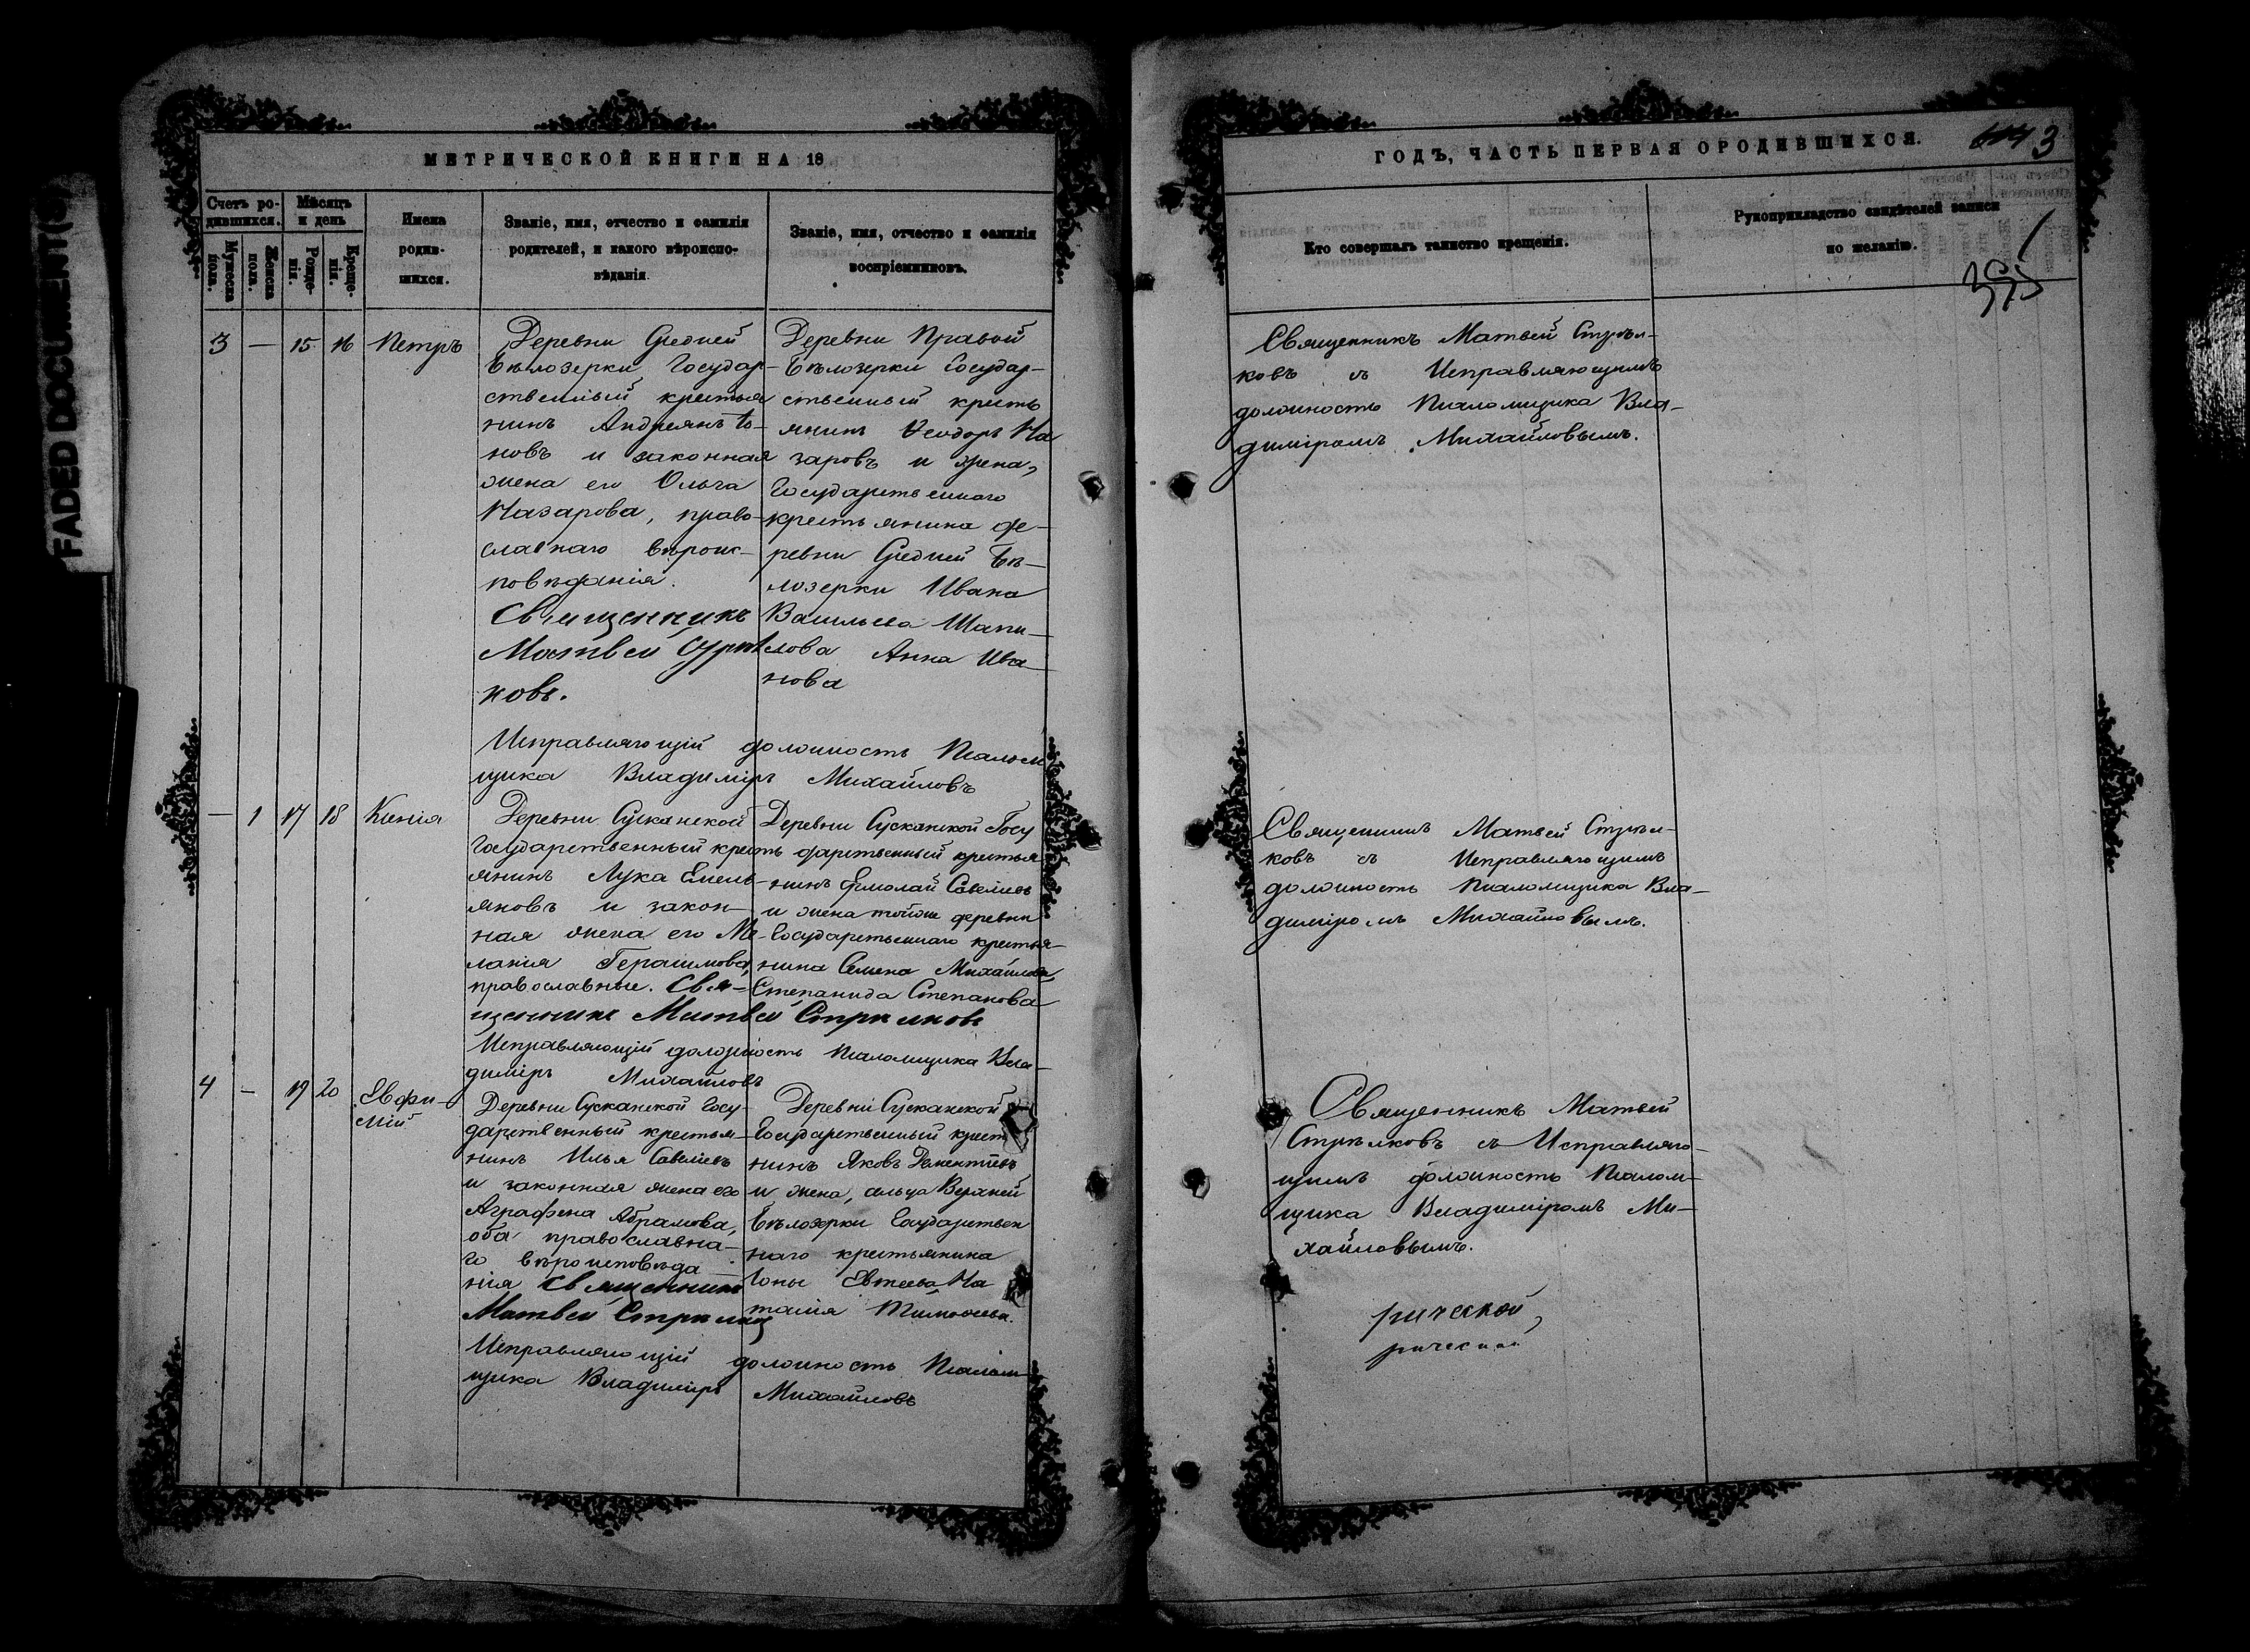 FADED DOCUMENT(S)
МЕТРИЧЕСКОЙ КНИГИ НА 18
Счетъ ро-
дившихся.
Мужеска
пола.
Женска
пола.
Мѣсяцъ
и день
Рожде-
нія.
Креще-
нія.
Имена
родив-
шихся.
Званіе, имя, отчество и фамилія
родителей, и какого вѣроиспо-
вѣданія
Званіе, имя, отчество и фамилія
воспріемниковъ.
3 — 15 16 Петръ
Деревни Средней
Бѣлозерки Государ-
ственный крестья
нинъ Андреянъ
новъ и законная
жена его Ольга
Назарова, право-
славнаго вѣроис-
повѣданія.
Священникъ
Матвей Стрѣл
ковъ.
Деревни Правой
Бѣлозерки Государ-
ственный кресть
янинъ Ѳеодоръ На
заровъ и жена,
Государственнаго
крестьянина де-
ревни Средней Бѣ-
лозерки Ивана
Васильева Шапи-
лова Анна Ива-
нова
Исправляющій должность Псалом
щика Владиміръ Михайловъ
— 1 17 18 Ксенія
Деревни Сусканской
Государственный кресть
янинъ Лука Емель-
яновъ и закон-
ная жена его Ме-
ланія Герасимова,
православные. Свя-
щенникъ Матвей Стрѣлковъ
Деревни Сусканской Госу
дарственный крестья
нинъ Ермолай Савельевъ
и жена тойже деревни
Государственнаго крестья-
нина Семена Михайлова
Степанида Степанова
Исправляющій должность Псаломщика Вла-
диміръ Михайловъ
4 — 19 20 Евфи-
мій
Деревни Сусканской Госу-
дарственный крестья-
нинъ Илья Савельевъ
и законная жена его
Аграфена Абрамова,
оба православна-
го вѣроисповѣда-
нія Священникъ
Матвей Стрѣлков
Деревни Сусканской
Государственный крест
нинъ Яковъ Дементьевъ
и жена, сельца Верхней
Бѣлозерки Государствен
наго крестьянина
Іоны Евтеева На
талія Тимоѳеева.
Исправляющій должность Псалом
щика Владиміръ Михайловъ
ГОДЪ, ЧАСТЬ ПЕРВАЯ О РОДИВШИХСЯ.
3
Кто совершалъ таинство крещенія.
Рукоприкладство свидѣтелей записи
по желанію.
395
Священникъ Матвей Стрѣл-
ковъ съ Исправляющимъ
должность Псаломщика Вла-
диміромъ Михайловымъ.
Священникъ Матвей Стрѣл-
ковъ съ Исправляющимъ
должность Псаломщика Вла-
диміромъ Михайловымъ.
Священникъ Матвей
Стрѣлковъ съ Исправляю-
щимъ должность Псалом-
щика Владиміромъ Ми-
хайловымъ.
рической,
рической